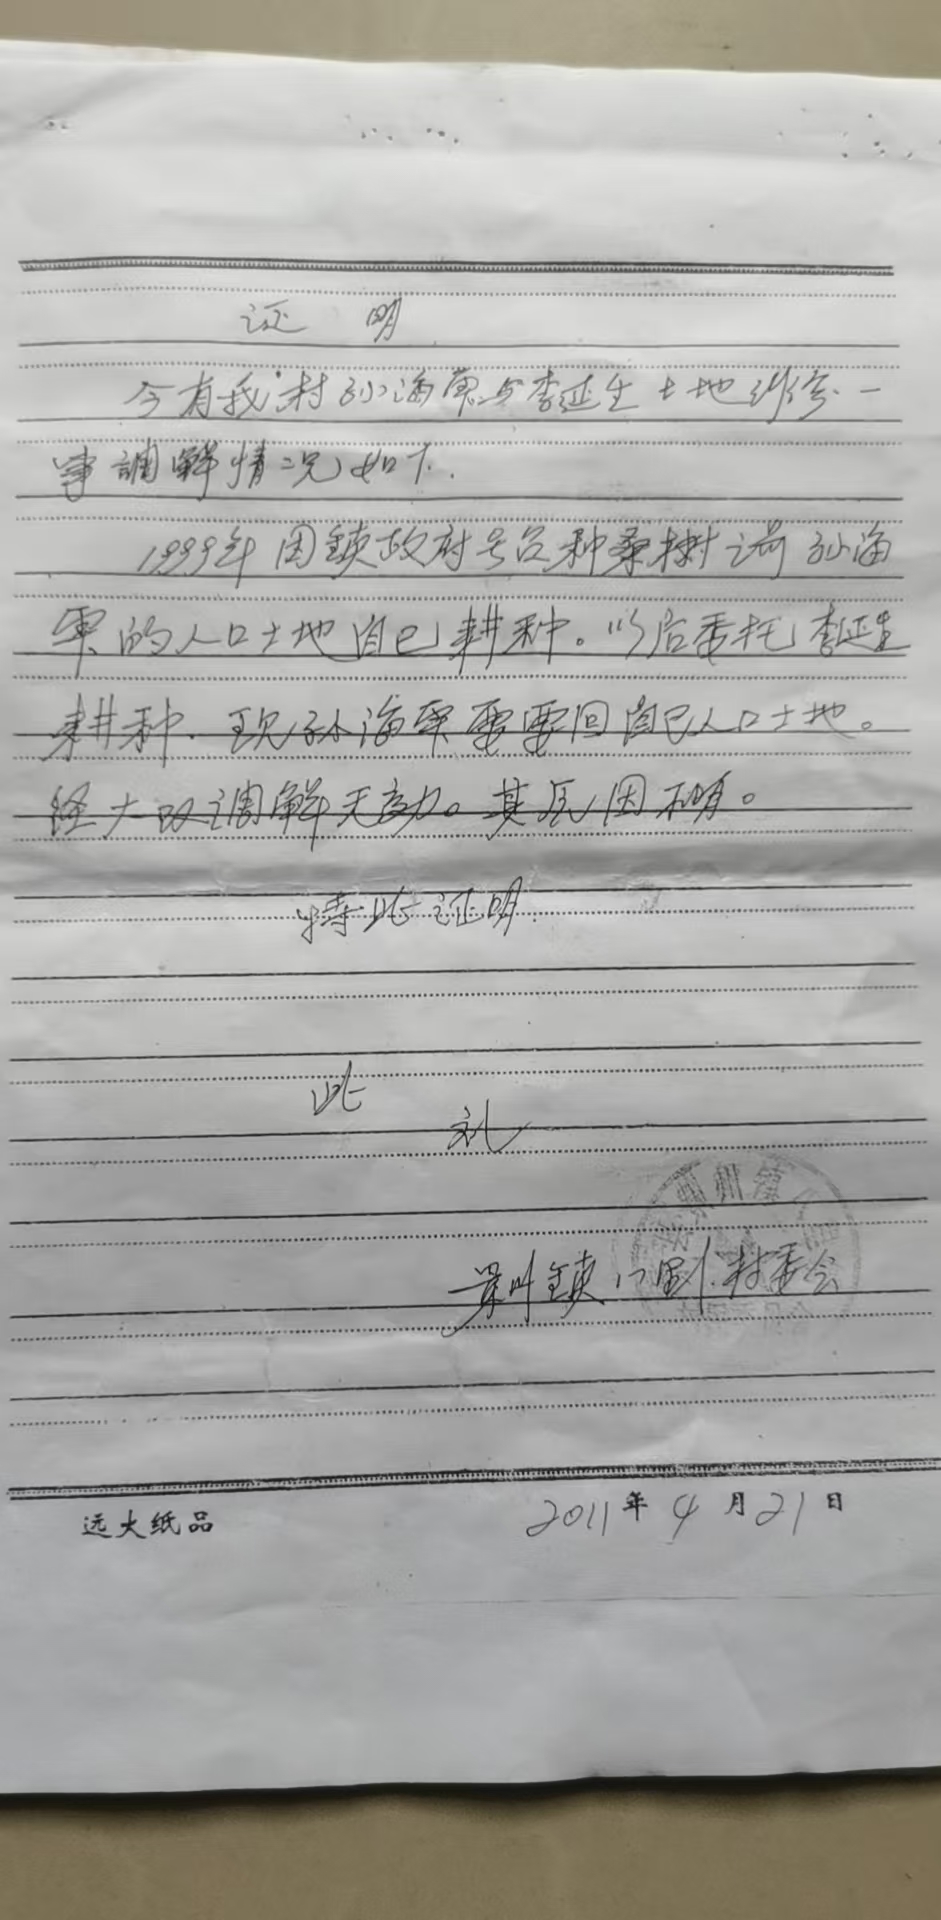 证 明
今有我村孙海军与李延生土地纠纷一
事調解情况如下.
1999年因镇政府号召种桑树 孙海
军的人口土地自己耕种。以后委托李延生
耕种.现孙海军要回自己人口土地。
经大队调解无效。其原因不明。
特此证明.
此
礼
镇 村委会
州
远大纸品
2011年4月21日